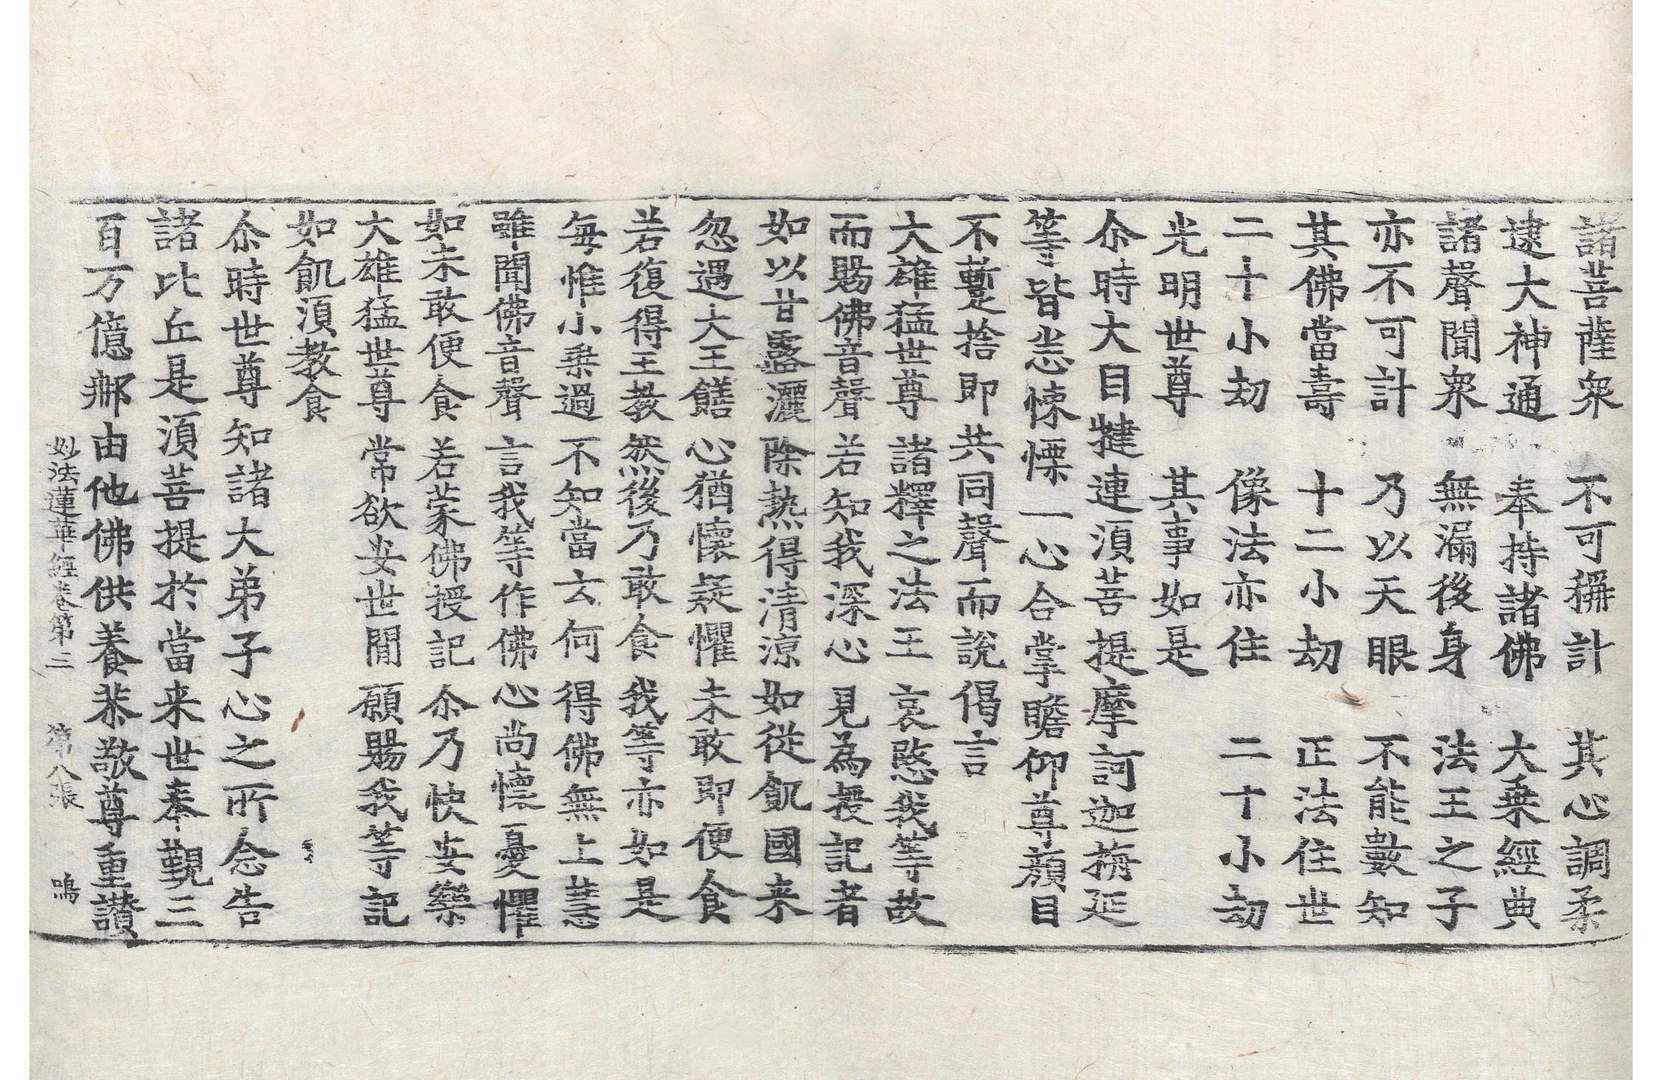 諸菩薩衆　不可稱計　其心調柔
逮大神通　奉持諸佛　大乗經典
諸聲聞衆　無漏後身　法王之子
亦不可計　乃以天眼　不能數知
其佛當壽　十二小劫　正法住世
二十小劫　像法亦住　二十小劫
光明世尊　其事如是
尒時大目揵連須菩提摩訶迦旃延
等皆悉悚慄一心合掌瞻仰尊顔目
不蹔捨即共同聲而說偈言
大雄猛世尊　諸釋之法王　哀愍我等故
而賜佛音聲　若知我深心　見為授記者
如以甘露灑　除熱得清涼　如從飢國来
忽遇大王饍　心猶懷疑懼　未敢即便食
若復得王教　然後乃敢食　我等亦如是
每惟小乗過　不知當云何　得佛無上慧
雖聞佛音聲　言我等作佛　心尚懷憂懼
如未敢便食　若蒙佛授記　尒乃快安樂
大雄猛世尊　常欲安世閒　願賜我等記
如飢湏教食
尒時世尊知諸大弟子心之所念告
諸比丘是湏菩提於當来世奉覲三
百万億那由他佛供養恭敬尊重讃
妙法蓮華經卷第三　第八張　鳴